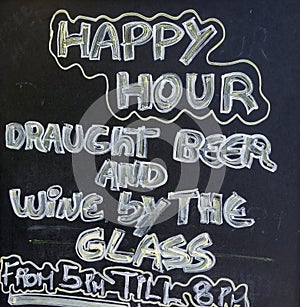 HAPPY
HOUR
DRAUGHT BEER
AND
WINE by THE
GLASS
FROM 5 PM TILL 8 PM